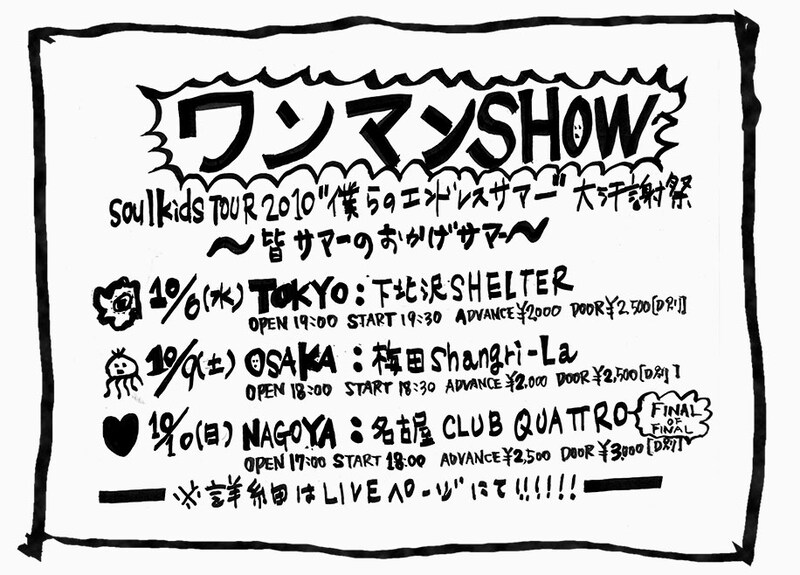 ワンマンSHOW
soulkids TOUR 2010 "僕らのエンドレスサマー" 大汗謝祭
〜皆サマーのおかげサマー〜
10/6(水) TOKYO:下北沢SHELTER
OPEN 19:00 START 19:30 ADVANCE¥2000 DOOR¥2,500[D別]
10/9(土) OSAKA:梅田Shangri-La
OPEN 18:00 START 18:30 ADVANCE¥2,000 DOOR¥2,500[D別]
10/10(日) NAGOYA:名古屋 CLUB QUATTRO
FINAL
OF
FINAL
OPEN 17:00 START 18:00 ADVANCE¥2,500 DOOR¥3,000[D別]
※詳細はLIVEページにて!!!!!!